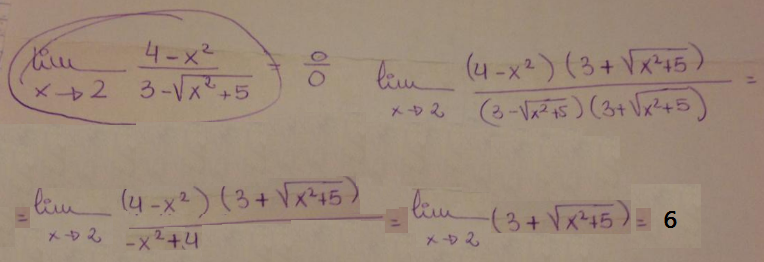 lim x→2 (4-x²)/(3-√(x²+5)) = 0/0 lim x→2 ((4-x²)(3+√(x²+5)))/((3-√(x²+5))(3+√(x²+5))) =
= lim x→2 ((4-x²)(3+√(x²+5)))/(-x²+4) = lim x→2 (3+√(x²+5)) = 6